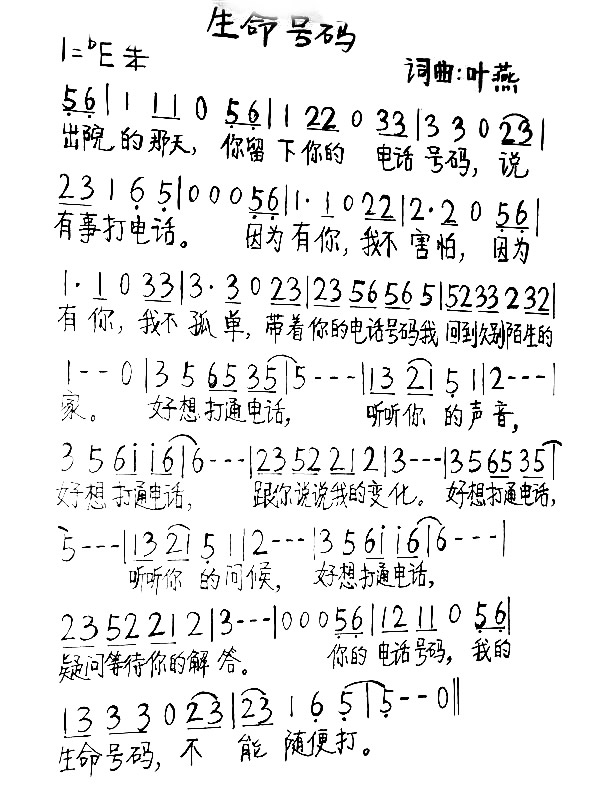 生命号码
1=♭E 朱
词曲:叶燕
5̣6̣|1 11 0 5̣6̣|1 22 0 33|3 3 0 23|
出院的那天，你留下你的 电话号码，说
23 1 6̣ 5̣|0 0 0 5̣6̣|1· 1 0 22|2· 2 0 5̣6̣|
有事打电话。 因为有你，我不害怕，因为
1· 1 0 33|3· 3 0 23|23 56 56 5|52 33 2 32|
有你，我不孤单，带着你的电话号码我回到久别陌生的
1--0|3 5 65 35|5---|13 21 5̣ 1|2---|
家。 好想打通电话， 听听你的声音，
3 5 6i i6|6---|23 52 21 2|3---|3 5 65 35|
好想打通电话， 跟你说说我的变化。好想打通电话，
5---|13 21 5̣ 1|2---|3 5 6i i6|6---|
听听你的问候， 好想打通电话，
23 52 21 2|3---|0 0 0 5̣6̣|12 11 0 5̣6̣|
疑问等待你的解答。 你的电话号码，我的
13 3 3 0 23|23 1 6̣ 5̣|5̣--0‖
生命号码，不能随便打。